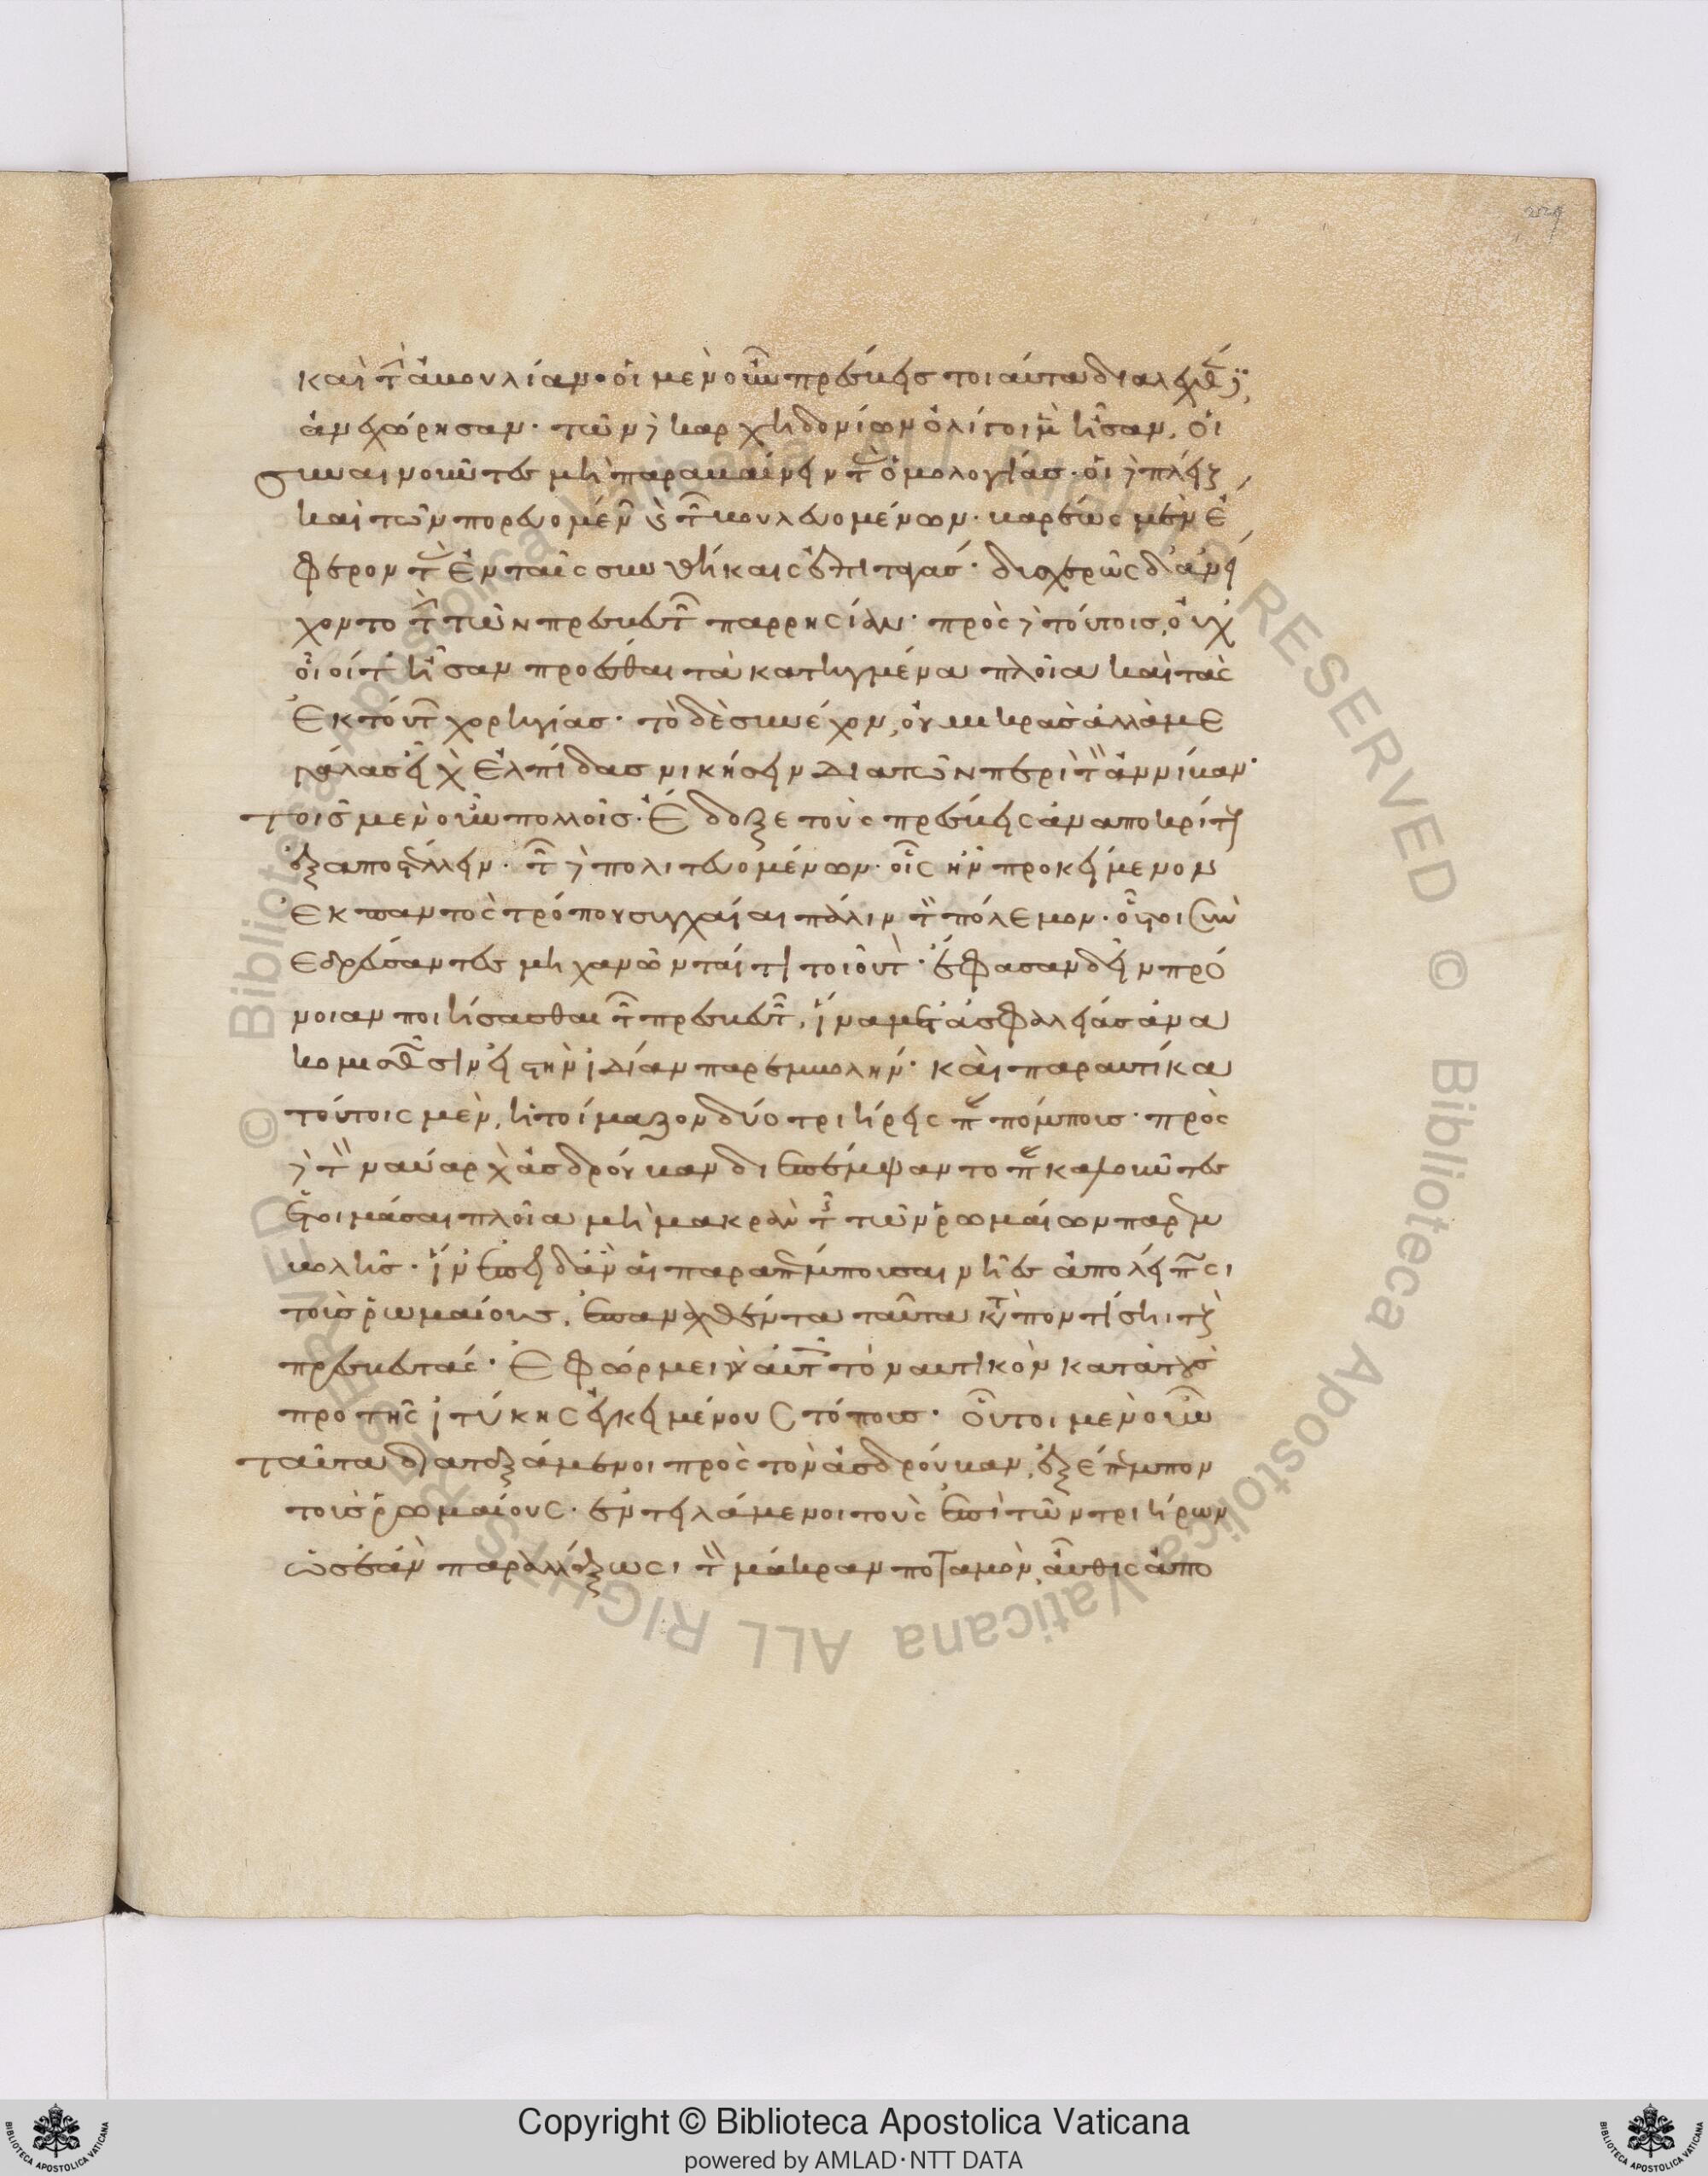 καὶ τὴν ἀβουλίαν· οἱ μὲν οὖν πρέσβεις τοιαῦτα διαλεχθέντες
ἀνεχώρησαν· τῶν δὲ καρχηδονίων ὀλίγοι μὲν ἦσαν, οἱ
συναινοῦντες μὴ παραβαίνειν τὰς ὁμολογίας· οἱ δὲ πλείους
καὶ τῶν πορευομένων καὶ τῶν βουλευομένων· βαρέως μὲν ἔ
φερον τὰς ἐν ταῖς συνθήκαις ἐπιταγάς· δυσχερῶς δ' ἀνεί
χοντο τὴν τῶν πρεσβευτῶν παρρησίαν· πρὸς δὲ τούτοις, οὐχ
οἷοί τε ἦσαν προέσθαι τὰ κατηγμένα πλοῖα καὶ τὰς
ἐκ τούτων χορηγίας· τὸ δὲ συνέχον, οὐ μικρὰς ἀλλὰ με
γάλας εἶχον ἐλπίδας νικήσειν διὰ τῶν περὶ τὸν ἀννίβαν·
τοῖς μὲν οὖν πολλοῖς· ἔδοξε τοὺς πρέσβεις ἀναποκρίτους
ἐξαποστέλλειν· τῶν δὲ πολιτευομένων· οἷς ἦν προκείμενον
ἐκ παντὸς τρόπου συγχέαι πάλιν τὸν πόλεμον· οὗτοι συν
εδρεύσαντες μηχανῶνταί τι τοιοῦτον· ἔφασαν δεῖν πρό
νοιαν ποιήσασθαι τῶν πρεσβευτῶν, ἵνα μετ' ἀσφαλείας ἀνα
κομισθῶσιν εἰς τὴν ἰδίαν παρεμβολήν· καὶ παραυτίκα
τούτοις μὲν, ἡτοίμαζον δύο τριήρεις παραπόμπους· πρὸς
δὲ τὸν ναύαρχον ἀσδρούβαν διεπέμψαντο παρακαλοῦντες
ἑτοιμάσαι πλοῖα μὴ μακρὰν τῆς τῶν ῥωμαίων παρεμ
βολῆς· ἵν' ἐπειδὰν αἱ παραπέμπουσαι νῆες ἀπολείπωσι
τοὺς ῥωμαίους, ἐπαναχθέντα ταῦτα καταποντίσῃ τοὺς
πρεσβευτάς· ἐφώρμει γὰρ αὐτῶν τὸ ναυτικὸν κατὰ τοὺς
πρὸ τῆς ἰτύκης ἐγκειμένους τόπους· οὗτοι μὲν οὖν
ταῦτα διαταξάμενοι πρὸς τὸν ἀσδρούβαν, ἐξέπεμπον
τοὺς ῥωμαίους· ἐντειλάμενοι τοὺς ἐπὶ τῶν τριήρων
ὡς ἐὰν παραλλάξωσι τὸν μάκραν ποταμὸν, αὖθις ἀπο
Copyright © Biblioteca Apostolica Vaticana
powered by AMLAD·NTT DATA